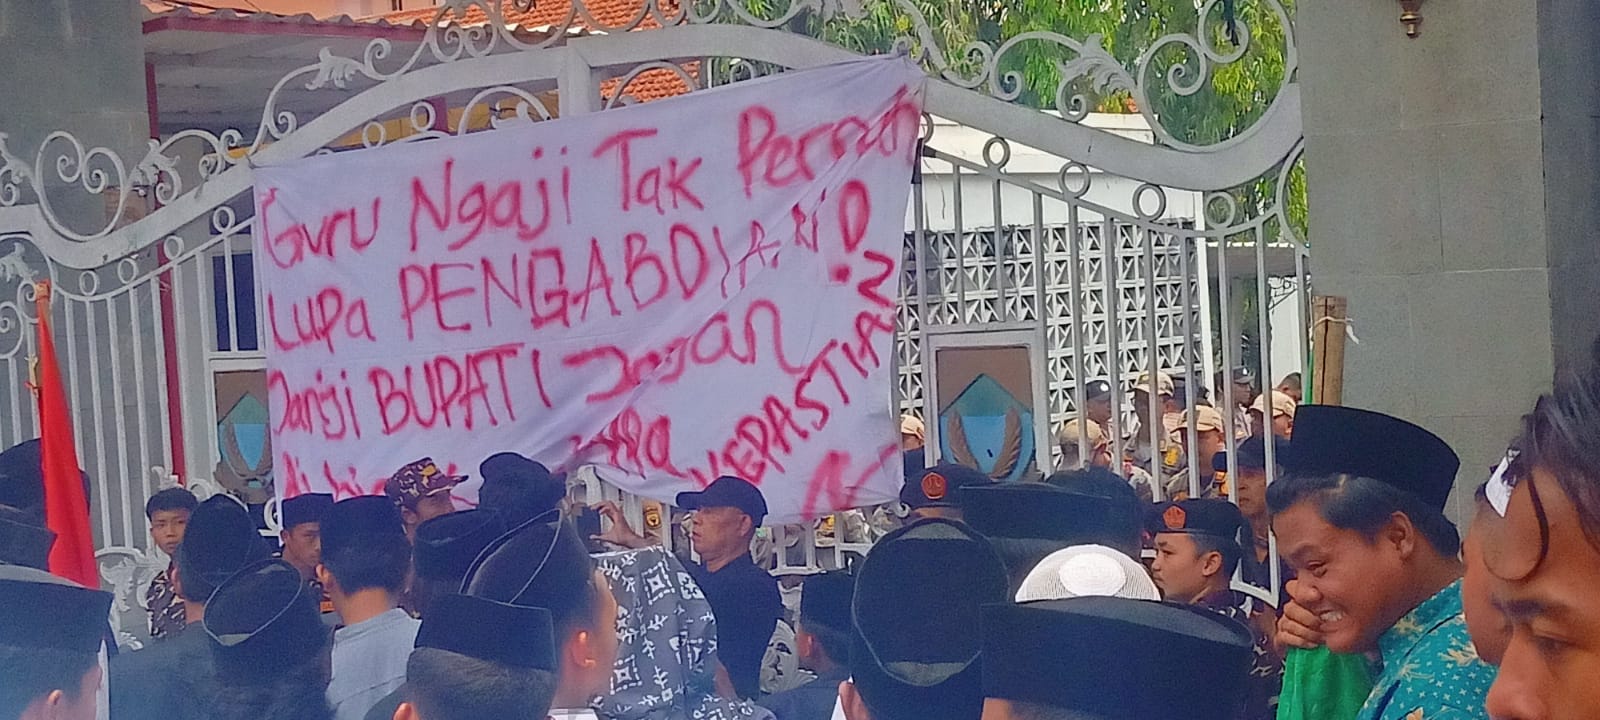 Guru Ngaji Tak Pernah
Lupa PENGABDIAN
Janji BUPATI Jangan
KEPASTIAN